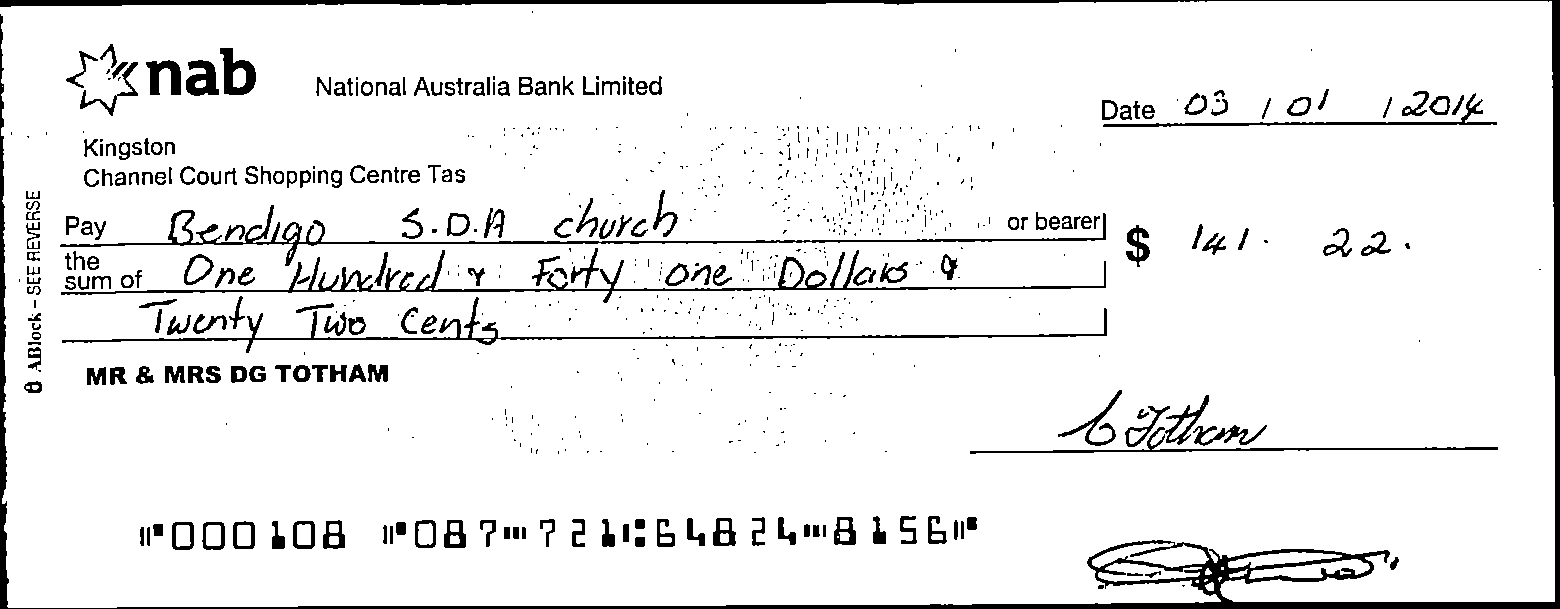 nab
National Australia Bank Limited
Date 03 / 01 / 2014
Kingston
Channel Court Shopping Centre Tas
ABlock - SEE REVERSE
Pay Bendigo S.D.A church or bearer
$ 141. 22.
the sum of One Hundred & Forty one Dollars &
Twenty Two Cents
MR & MRS DG TOTHAM
Totham
⑈000108 ⑈087⑉721⑆64824⑉8156⑈